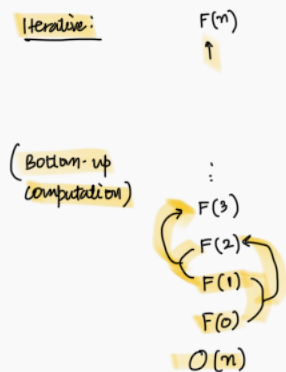 Iterative:
F(n)
(Bottom-up
computation)
⋮
F(3)
F(2)
F(1)
F(0)
O(n)